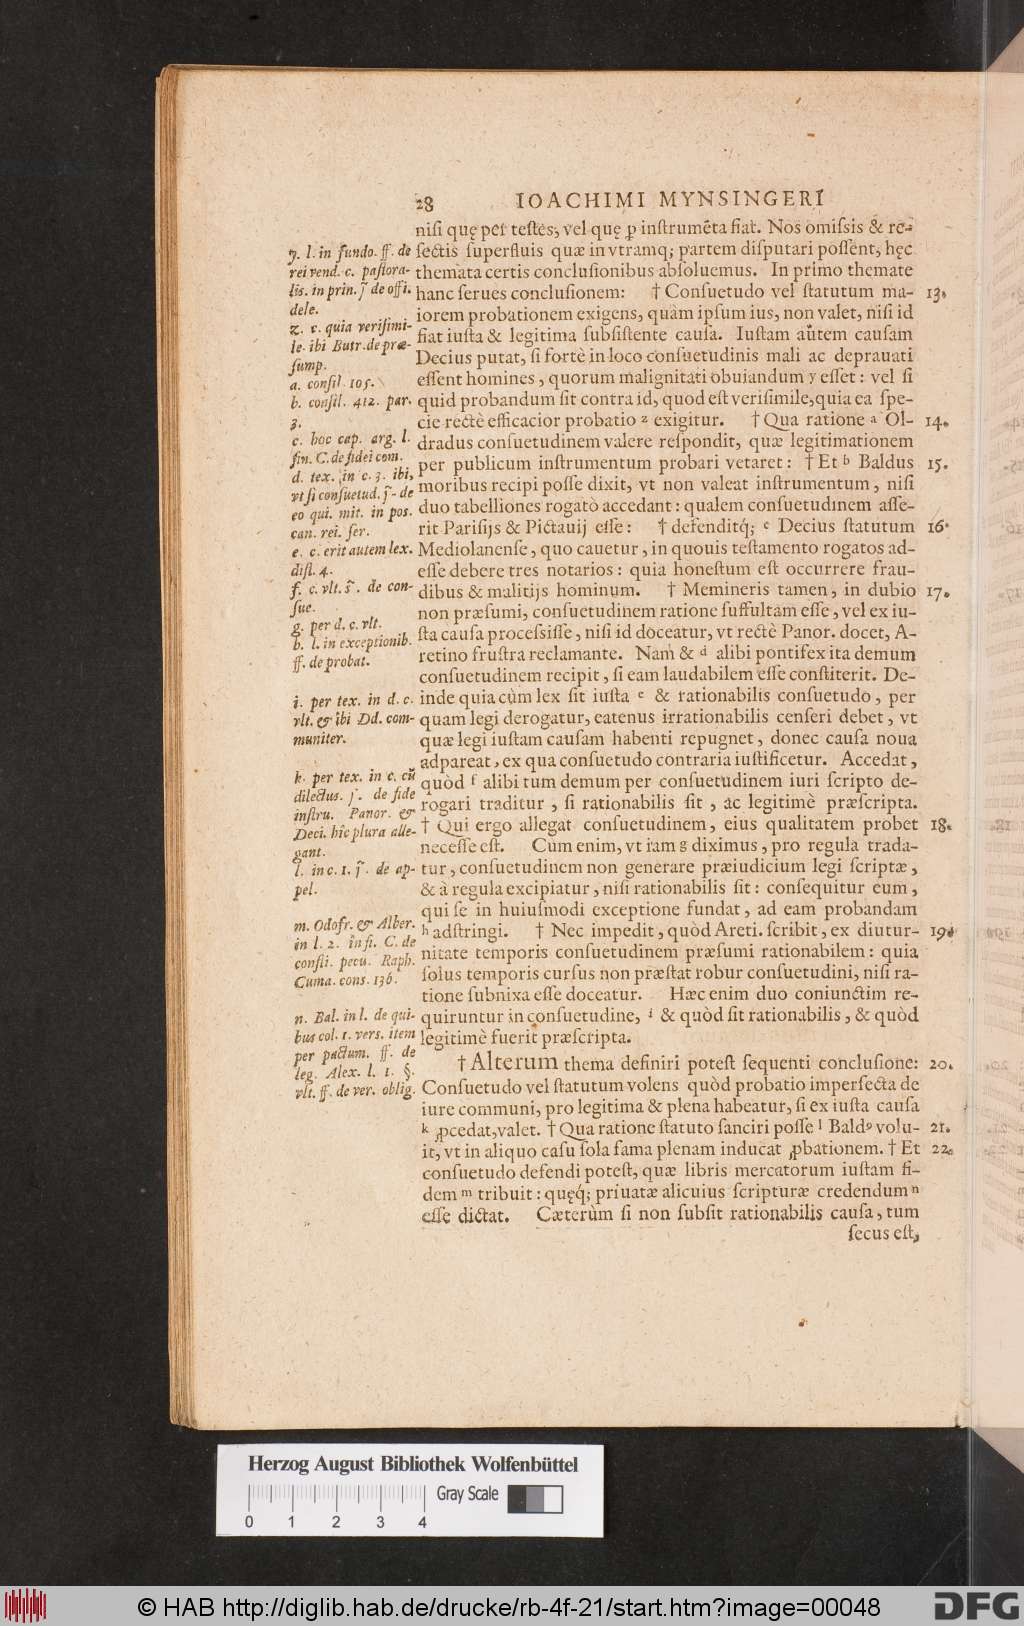 28 IOACHIMI MYNSINGERI
niſi quę per teſtes, vel quę ꝑ inſtrumēta fiat. Nos omiſsis & re-
ſectis ſuperfluis quæ in vtramq; partem diſputari poſſent, hęc
themata certis concluſionibus abſoluemus. In primo themate
hanc ſerues concluſionem: † Conſuetudo vel ſtatutum ma- 13.
iorem probationem exigens, quàm ipſum ius, non valet, niſi id
fiat iuſta & legitima ſubſiſtente cauſa. Iuſtam aūtem cauſam
Decius putat, ſi fortè in loco conſuetudinis mali ac deprauati
eſſent homines, quorum malignitati obuiandum y eſſet: vel ſi
quid probandum ſit contra id, quod eſt veriſimile, quia ea ſpe-
cie rectè efficacior probatio z exigitur. † Qua ratione a Ol- 14.
dradus conſuetudinem valere reſpondit, quæ legitimationem
per publicum inſtrumentum probari vetaret: † Et b Baldus 15.
moribus recipi poſſe dixit, vt non valeat inſtrumentum, niſi
duo tabelliones rogatò accedant: qualem conſuetudinem aſſe-
rit Pariſijs & Pictauij eſſe: † defenditq́; c Decius ſtatutum 16.
Mediolanenſe, quo cauetur, in quouis teſtamento rogatos ad-
eſſe debere tres notarios: quia honeſtum eſt occurrere frau-
dibus & malitijs hominum. † Memineris tamen, in dubio 17.
non præſumi, conſuetudinem ratione ſuffultam eſſe, vel ex iu-
ſta cauſa proceſsiſſe, niſi id doceatur, vt rectè Panor. docet, A-
retino fruſtra reclamante. Nam & d alibi pontifex ita demum
conſuetudinem recipit, ſi eam laudabilem eſſe conſtiterit. De-
inde quia cùm lex ſit iuſta e & rationabilis conſuetudo, per
quam legi derogatur, eatenus irrationabilis cenſeri debet, vt
quæ legi iuſtam cauſam habenti repugnet, donec cauſa noua
adpareat, ex qua conſuetudo contraria iuſtificetur. Accedat,
quòd f alibi tum demum per conſuetudinem iuri ſcripto de-
rogari traditur, ſi rationabilis ſit, ac legitimè præſcripta.
† Qui ergo allegat conſuetudinem, eius qualitatem probet 18.
neceſſe eſt. Cùm enim, vt iam g diximus, pro regula trada-
tur, conſuetudinem non generare præiudicium legi ſcriptæ,
& à regula excipiatur, niſi rationabilis ſit: conſequitur eum,
qui ſe in huiuſmodi exceptione fundat, ad eam probandam
h adſtringi. † Nec impedit, quòd Areti. ſcribit, ex diutur- 19.
nitate temporis conſuetudinem præſumi rationabilem: quia
ſolus temporis curſus non præſtat robur conſuetudini, niſi ra-
tione ſubnixa eſſe doceatur. Hæc enim duo coniunctim re-
quiruntur in conſuetudine, i & quòd ſit rationabilis, & quòd
legitimè fuerit præſcripta.
† Alterum thema definiri poteſt ſequenti concluſione: 20.
Conſuetudo vel ſtatutum volens quòd probatio imperfecta de
iure communi, pro legitima & plena habeatur, ſi ex iuſta cauſa
k ꝓcedat, valet. † Qua ratione ſtatuto ſanciri poſſe l Baldꝰ volu- 21.
it, vt in aliquo caſu ſola fama plenam inducat ꝓbationem. † Et 22.
conſuetudo defendi poteſt, quæ libris mercatorum iuſtam fi-
dem m tribuit: quęq́; priuatæ alicuius ſcripturæ credendum n
eſſe dictat. Cæterùm ſi non ſubſit rationabilis cauſa, tum
ſecus eſt,
y. l. in fundo. ff. de
rei vend. c. paſtora-
lis. in prin. ſ̃ de offi.
dele.
z. c. quia veriſimi-
le. ibi Butr. de præ-
ſump.
a. conſil. 105.
b. conſil. 412. par.
3.
c. hoc cap. arg. l.
fin. C. de fidei com.
d. tex. in c. 3. ibi,
vt ſi conſuetud. ſ̃. de
eo qui. mit. in poſ.
can. rei. ſer.
e. c. erit autem lex.
diſt. 4.
f. c. vlt. ſ̃. de con-
ſue.
g. per d. c. vlt.
h. l. in exceptionib.
ff. de probat.
i. per tex. in d. c.
vlt. & ibi Dd. com-
muniter.
k. per tex. in c. cū
dilectus. ſ̃. de fide
inſtru. Panor. &
Deci. hic plura alle-
gant.
l. in c. 1. ſ̃. de ap-
pel.
m. Odofr. & Alber.
in l. 2. in fi. C. de
conſti. pecu. Raph.
Cuma. cons. 136.
n. Bal. in l. de qui-
bus col. 1. vers. item
per pactum. ff. de
leg. Alex. l. 1. §.
vlt. ff. de ver. oblig.
Herzog August Bibliothek Wolfenbüttel
Gray Scale
0 1 2 3 4
© HAB http://diglib.hab.de/drucke/rb-4f-21/start.htm?image=00048
DFG